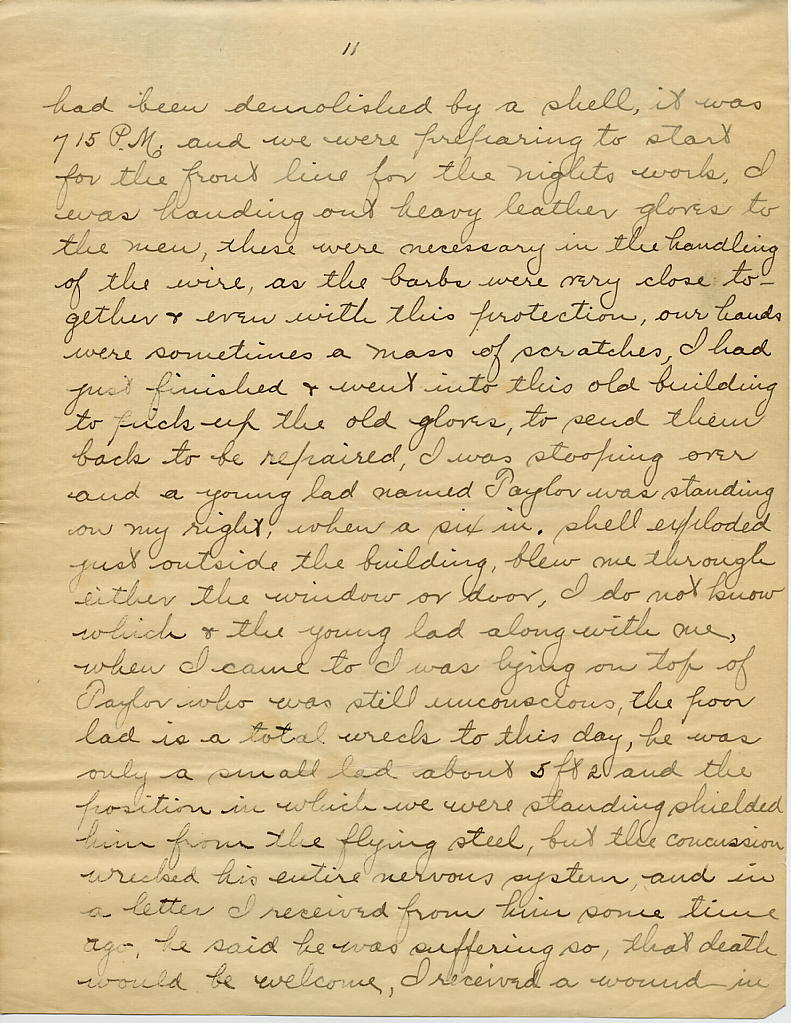 11
had been demolished by a shell, it was
7 15 P.M. and we were preparing to start
for the front line for the nights work, I
was handing out heavy leather gloves to
the men, these were necessary in the handling
of the wire, as the barbs were very close to-
gether & even with this protection, our hands
were sometimes a mass of scratches, I had
just finished & went into this old building
to pick up the old gloves, to send them
back to be repaired, I was stooping over
and a young lad named Taylor was standing
on my right, when a six in. shell exploded
just outside the building, blew me through
either the window or door, I do not know
which & the young lad along with me,
when I came to I was lying on top of
Taylor who was still unconscious, the poor
lad is a total wreck to this day, he was
only a small lad about 5 ft 2 and the
position in which we were standing shielded
him from the flying steel, but the concussion
wrecked his entire nervous system, and in
a letter I received from him some time
ago, he said he was suffering so, that death
would be welcome, I received a wound in